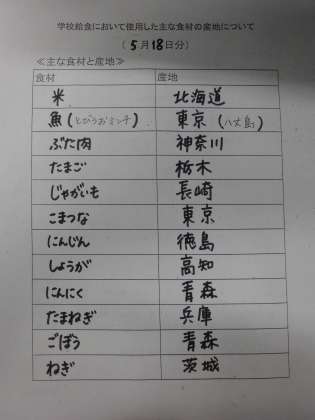 学校給食において使用した主な食材の産地について
(5月18日分)
≪主な食材と産地≫
食材 産地
米 北海道
魚(とびうおミンチ) 東京(八丈島)
ぶた肉 神奈川
たまご 栃木
じゃがいも 長崎
こまつな 東京
にんじん 徳島
しょうが 高知
にんにく 青森
たまねぎ 兵庫
ごぼう 青森
ねぎ 茨城